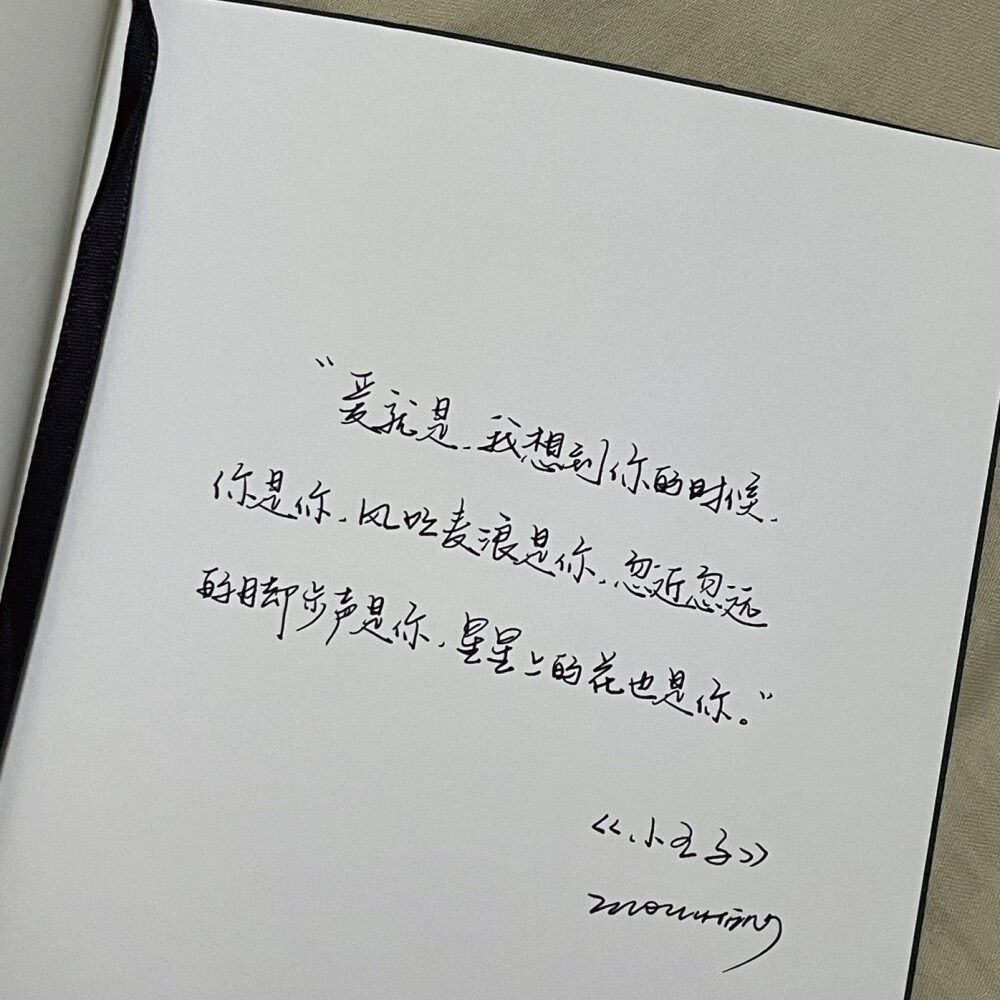 “爱就是，我想到你的时候，
你是你，风吹麦浪是你，忽近忽远
的脚步声是你，星星上的花也是你。”
《小王子》